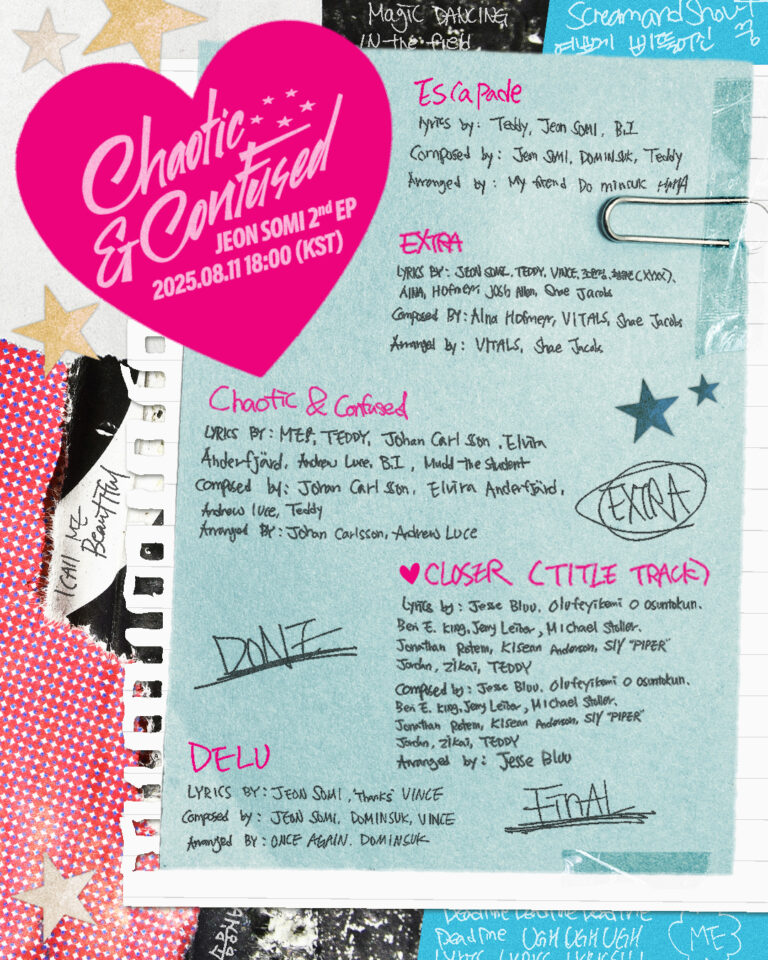 Magic DANCING
IN the field
ScreamandShout
Chaotic
& Confused
JEON SOMI 2nd EP
2025.08.11 18:00 (KST)
Escapade
Lyrics by: Teddy, Jeon SOMI, B.I
Composed by: Jeon SOMI, DOMINSUK, Teddy
Arranged by: My friend Do minsuk HAHA
EXTRA
LYRICS BY: JEON SOMI, TEDDY, VINCE, (XYXX),
AINA, Hofmeyr, Josh Allen, Shae Jacobs
Composed BY: AINA Hofmeyr, VITALS, Shae Jacobs
Arranged by: VITALS, Shae Jacobs
Chaotic & Confused
LYRICS BY: MEP, TEDDY, Johan Carlsson, Elvira
Anderfjärd, Andrew Luce, B.I, Mudd the student
Composed by: Johan Carlsson, Elvira Anderfjärd,
Andrew Luce, Teddy
Arranged BY: Johan Carlsson, Andrew Luce
EXTRA
I CAll ME
BEAUTIFUL
♥CLOSER (TITLE TRACK)
Lyrics by: Jesse Bluu, Olufeyikemi O Osuntokun.
Ben E. King, Jerry Leiber, Michael Stoller.
Jonathan Rotem, Kisean Anderson, SLY "PIPER"
Jordan, Zikai, TEDDY
Composed by: Jesse Bluu, Olufeyikemi O Osuntokun.
Ben E. King, Jerry Leiber, Michael Stoller.
Jonathan Rotem, Kisean Anderson, SLY "PIPER"
Jordan, Zikai, TEDDY
Arranged by: Jesse Bluu
DONE
DELU
LYRICS BY: JEON SOMI, Thanks VINCE
Composed by: JEON SOMI, DOMINSUK, VINCE
Arranged BY: ONCE AGAIN. DOMINSUK
FinAL
Deadline Deadline Deadline
Deadline UGH UGH UGH
ME